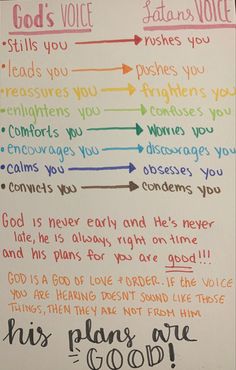 God's VOICE Satans VOICE
• Stills you → rushes you
• leads you → pushes you
• reassures you → frightens you
• enlightens you → confuses you
• comforts you → worries you
• encourages you → discourages you
• calms you → obsesses you
• convicts you → condems you
God is never early and He's never
late, he is always right on time
and his plans for you are good!!!
GOD IS A GOD OF LOVE + ORDER. IF THE VOICE
YOU ARE HEARING DOESN'T SOUND LIKE THOSE
THINGS, THEN THEY ARE NOT FROM HIM
his plans are
GOOD!